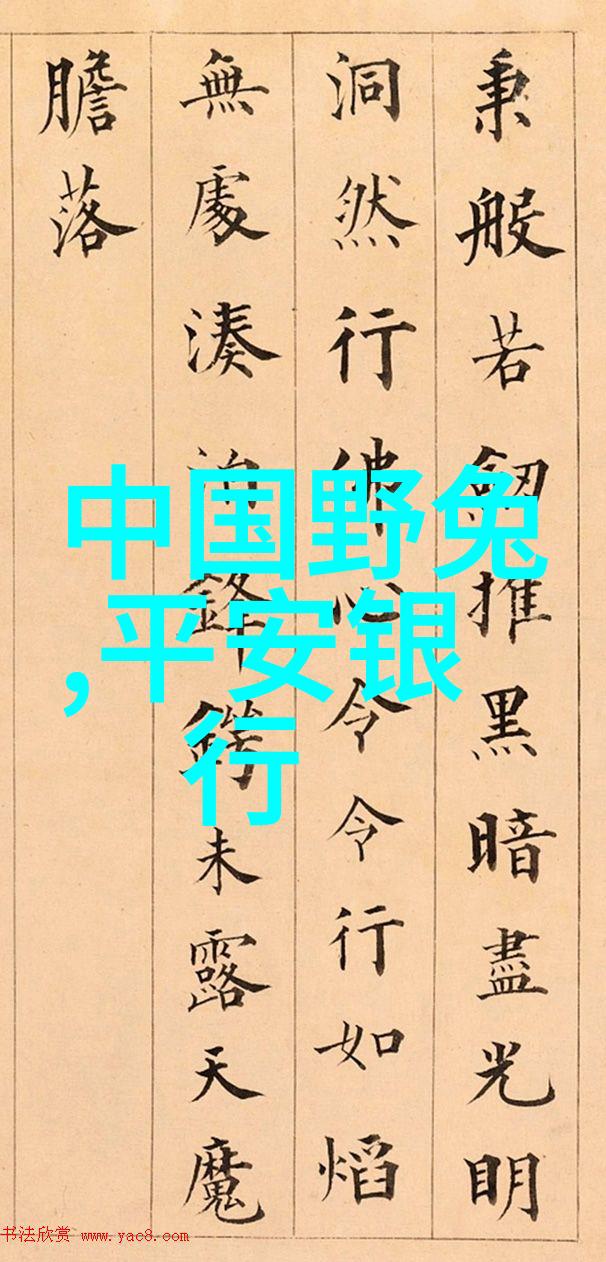 秉般若釼推黑暗盡光明
洞然行佛心令令行如熖
無處湊泊鋒鍔未露天魔
膽落
中国野兔
,平安银
行
书法欣赏 www.yac8.com